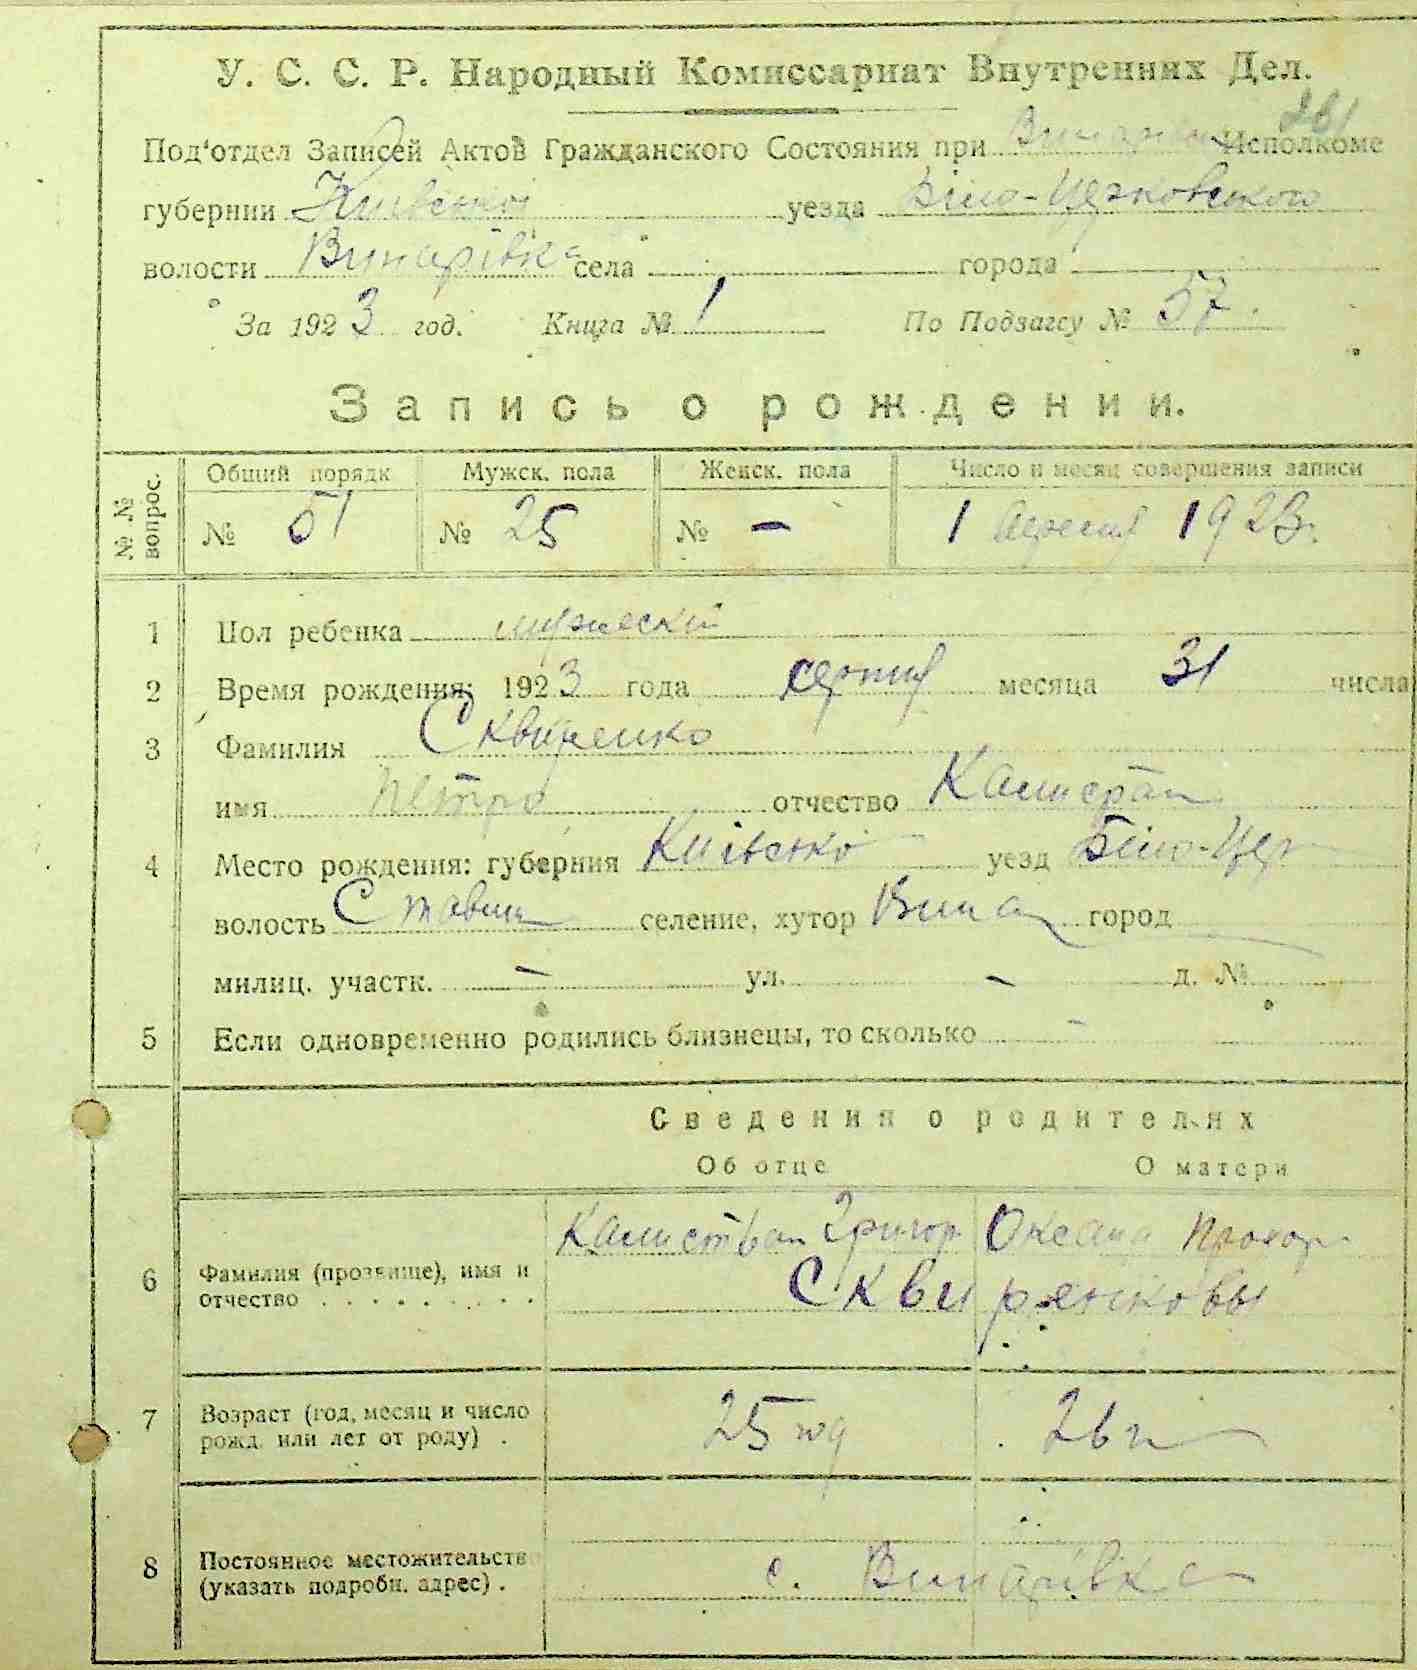 У. С. С. Р. Народный Комиссариат Внутренних Дел.
261
Под'отдел Записей Актов Гражданского Состояния при Винарск Исполкоме
губернии Київської уезда Біло-Церковського
волости Винарівка села города
За 1923 год. Книга № 1 По Подзагсу № 57.
Запись о рождении.
№ № вопрос. Общий порядк Мужск. пола Женск. пола Число и месяц совершения записи
№ 51 № 25 № — 1 1923.
1 Пол ребенка мужескій
2 Время рождения: 1923 года серпня месяца 31 числа
3 Фамилия Сквиренко
имя Петро отчество Калистрат
4 Место рождения: губерния Київсько уезд Біло-Цер
волость Ставищ селение, хутор Вина город
милиц. участк. — ул. — д. №
5 Если одновременно родились близнецы, то сколько -
Сведения о родителях
Об отце О матери
Калистрат Григор Оксана Прохор.
6 Фамилия (прозвище), имя и отчество Сквиренковы
7 Возраст (год, месяц и число рожд. или лет от роду) . 25 год
8 Постоянное местожительство (указать подробн. адрес) . с. Винарівка